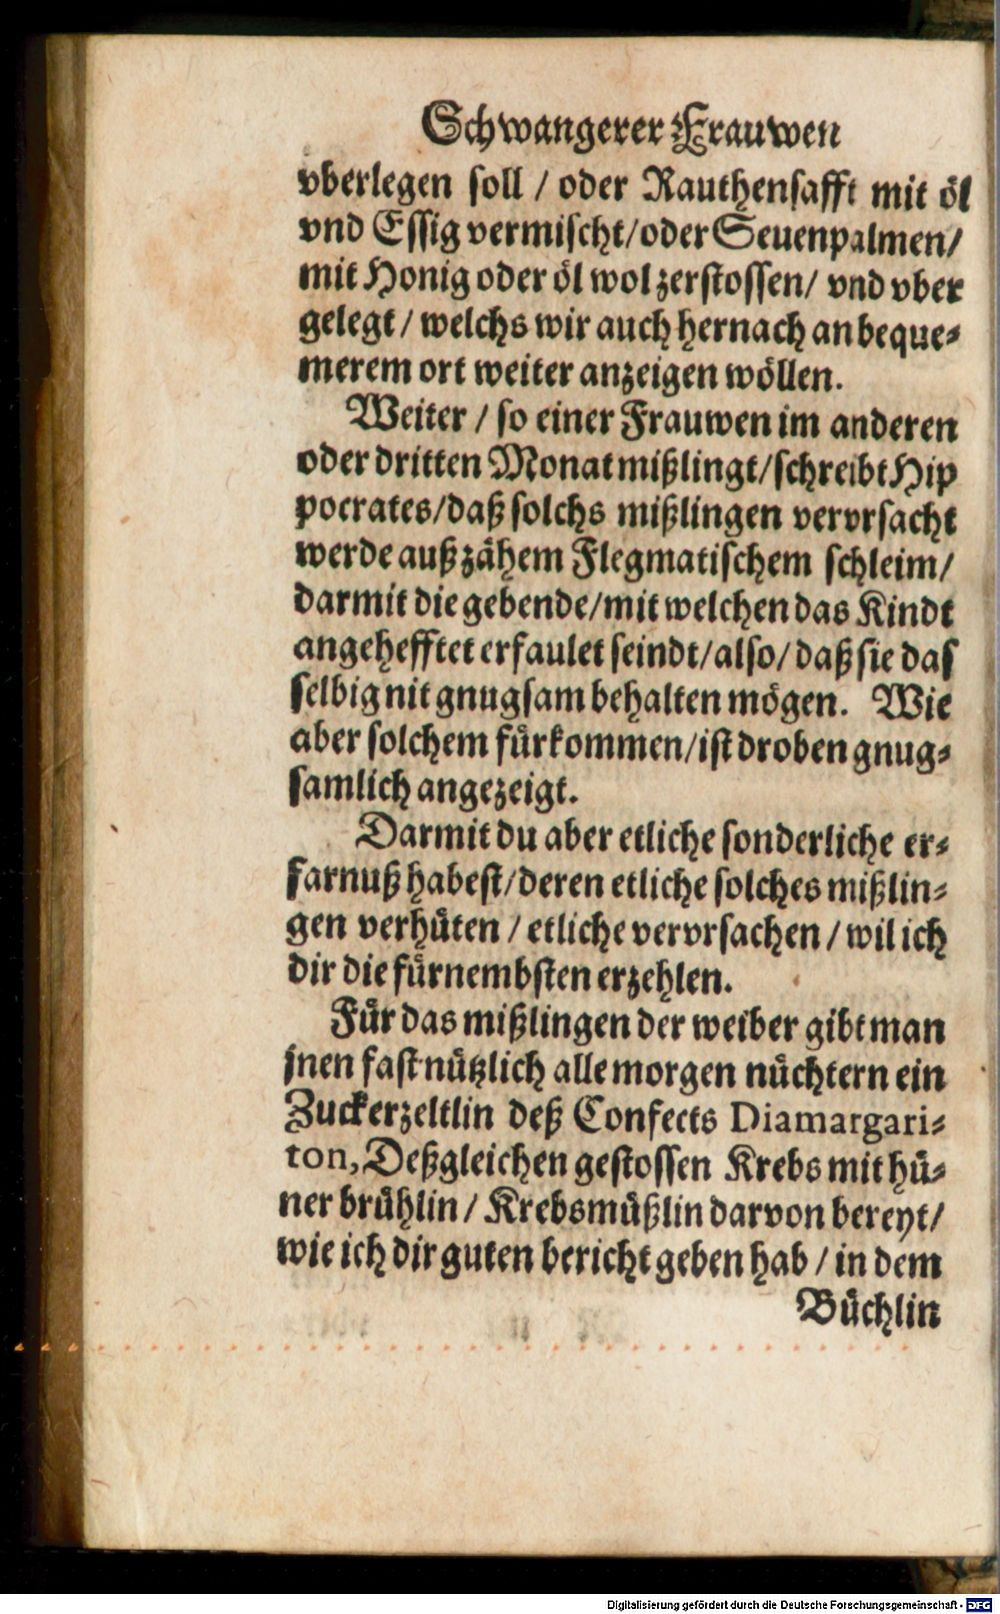 Schwangerer Frauwen
vberlegen soll / oder Rauthensafft mit öl
vnd Essig vermischt/oder Seuenpalmen/
mit Honig oder öl wol zerstossen/ vnd vber
gelegt / welchs wir auch hernach an beque-
merem ort weiter anzeigen wöllen.
Weiter / so einer Frauwen im anderen
oder dritten Monat mißlingt/schreibt Hip
pocrates/daß solchs mißlingen vervrsacht
werde auß zähem Flegmatischem schleim/
darmit die gebende/mit welchen das Kindt
angehefftet erfaulet seindt/also/daß sie das
selbig nit gnugsam behalten mögen. Wie
aber solchem fürkommen/ist droben gnug-
samlich angezeigt.
Darmit du aber etliche sonderliche er-
farnuß habest/deren etliche solches mißlin-
gen verhüten / etliche vervrsachen / wil ich
dir die fürnembsten erzehlen.
Für das mißlingen der weiber gibt man
jnen fast nützlich alle morgen nüchtern ein
Zuckerzeltlin deß Confects Diamargari-
ton, Deßgleichen gestossen Krebs mit hü-
ner brühlin / Krebsmüßlin darvon bereyt/
wie ich dir guten bericht geben hab / in dem
Büchlin
Digitalisierung gefördert durch die Deutsche Forschungsgemeinschaft - DFG